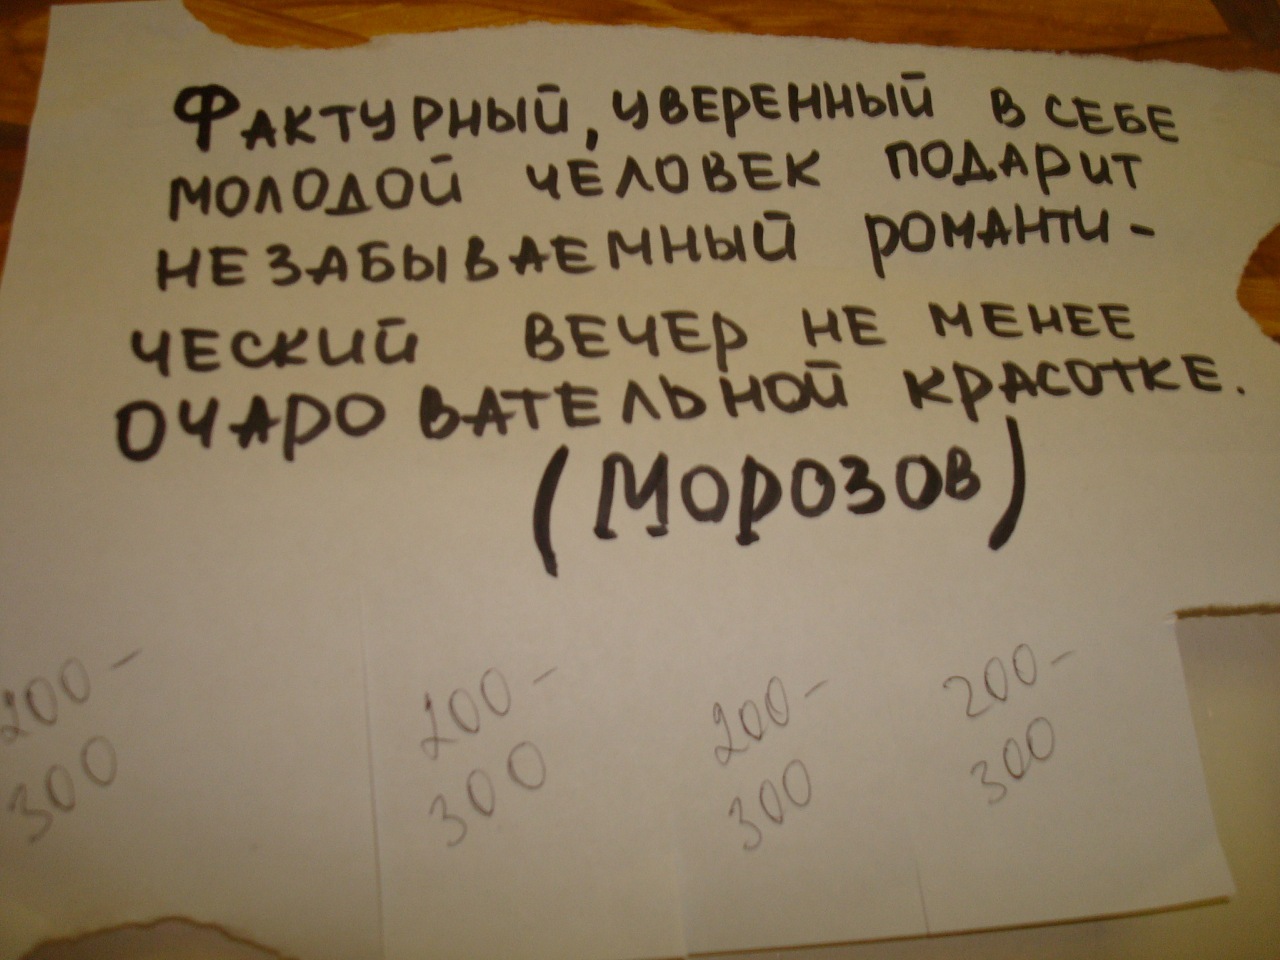 Фактурный, уверенный в себе
молодой человек подарит
незабываемный романти-
ческий вечер не менее
очаровательной красотке.
(Морозов)
200- 200- 200- 200-
300 300 300 300